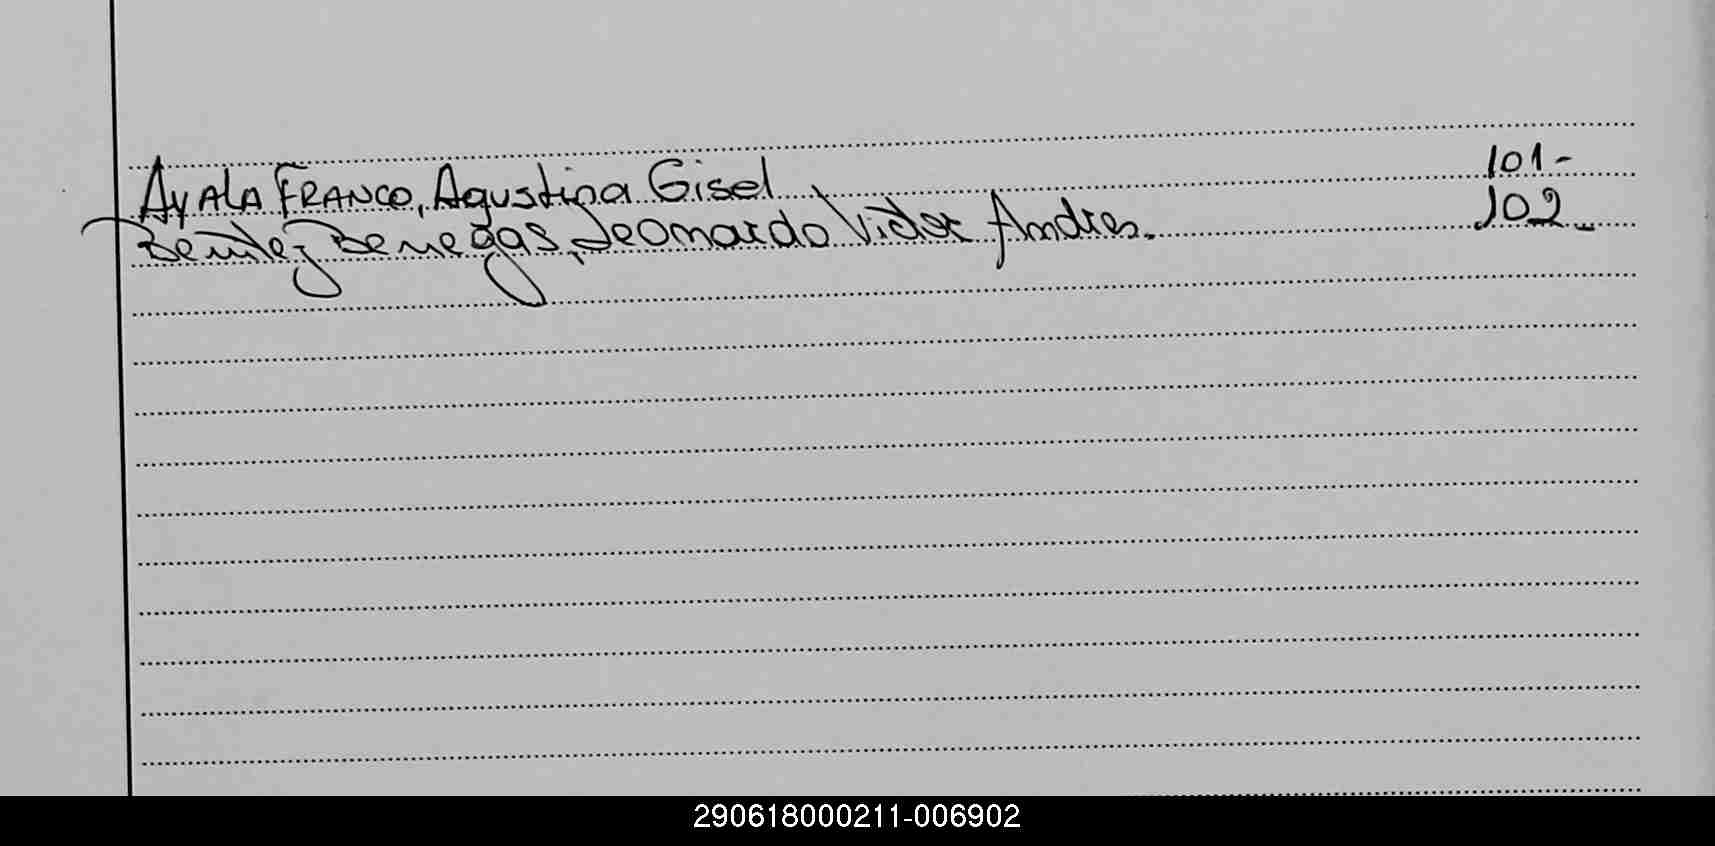 Ayala Franco, Agustina Gisel 101-
Benitez Benegas, Leonardo Victor Andres. 102
290618000211-006902